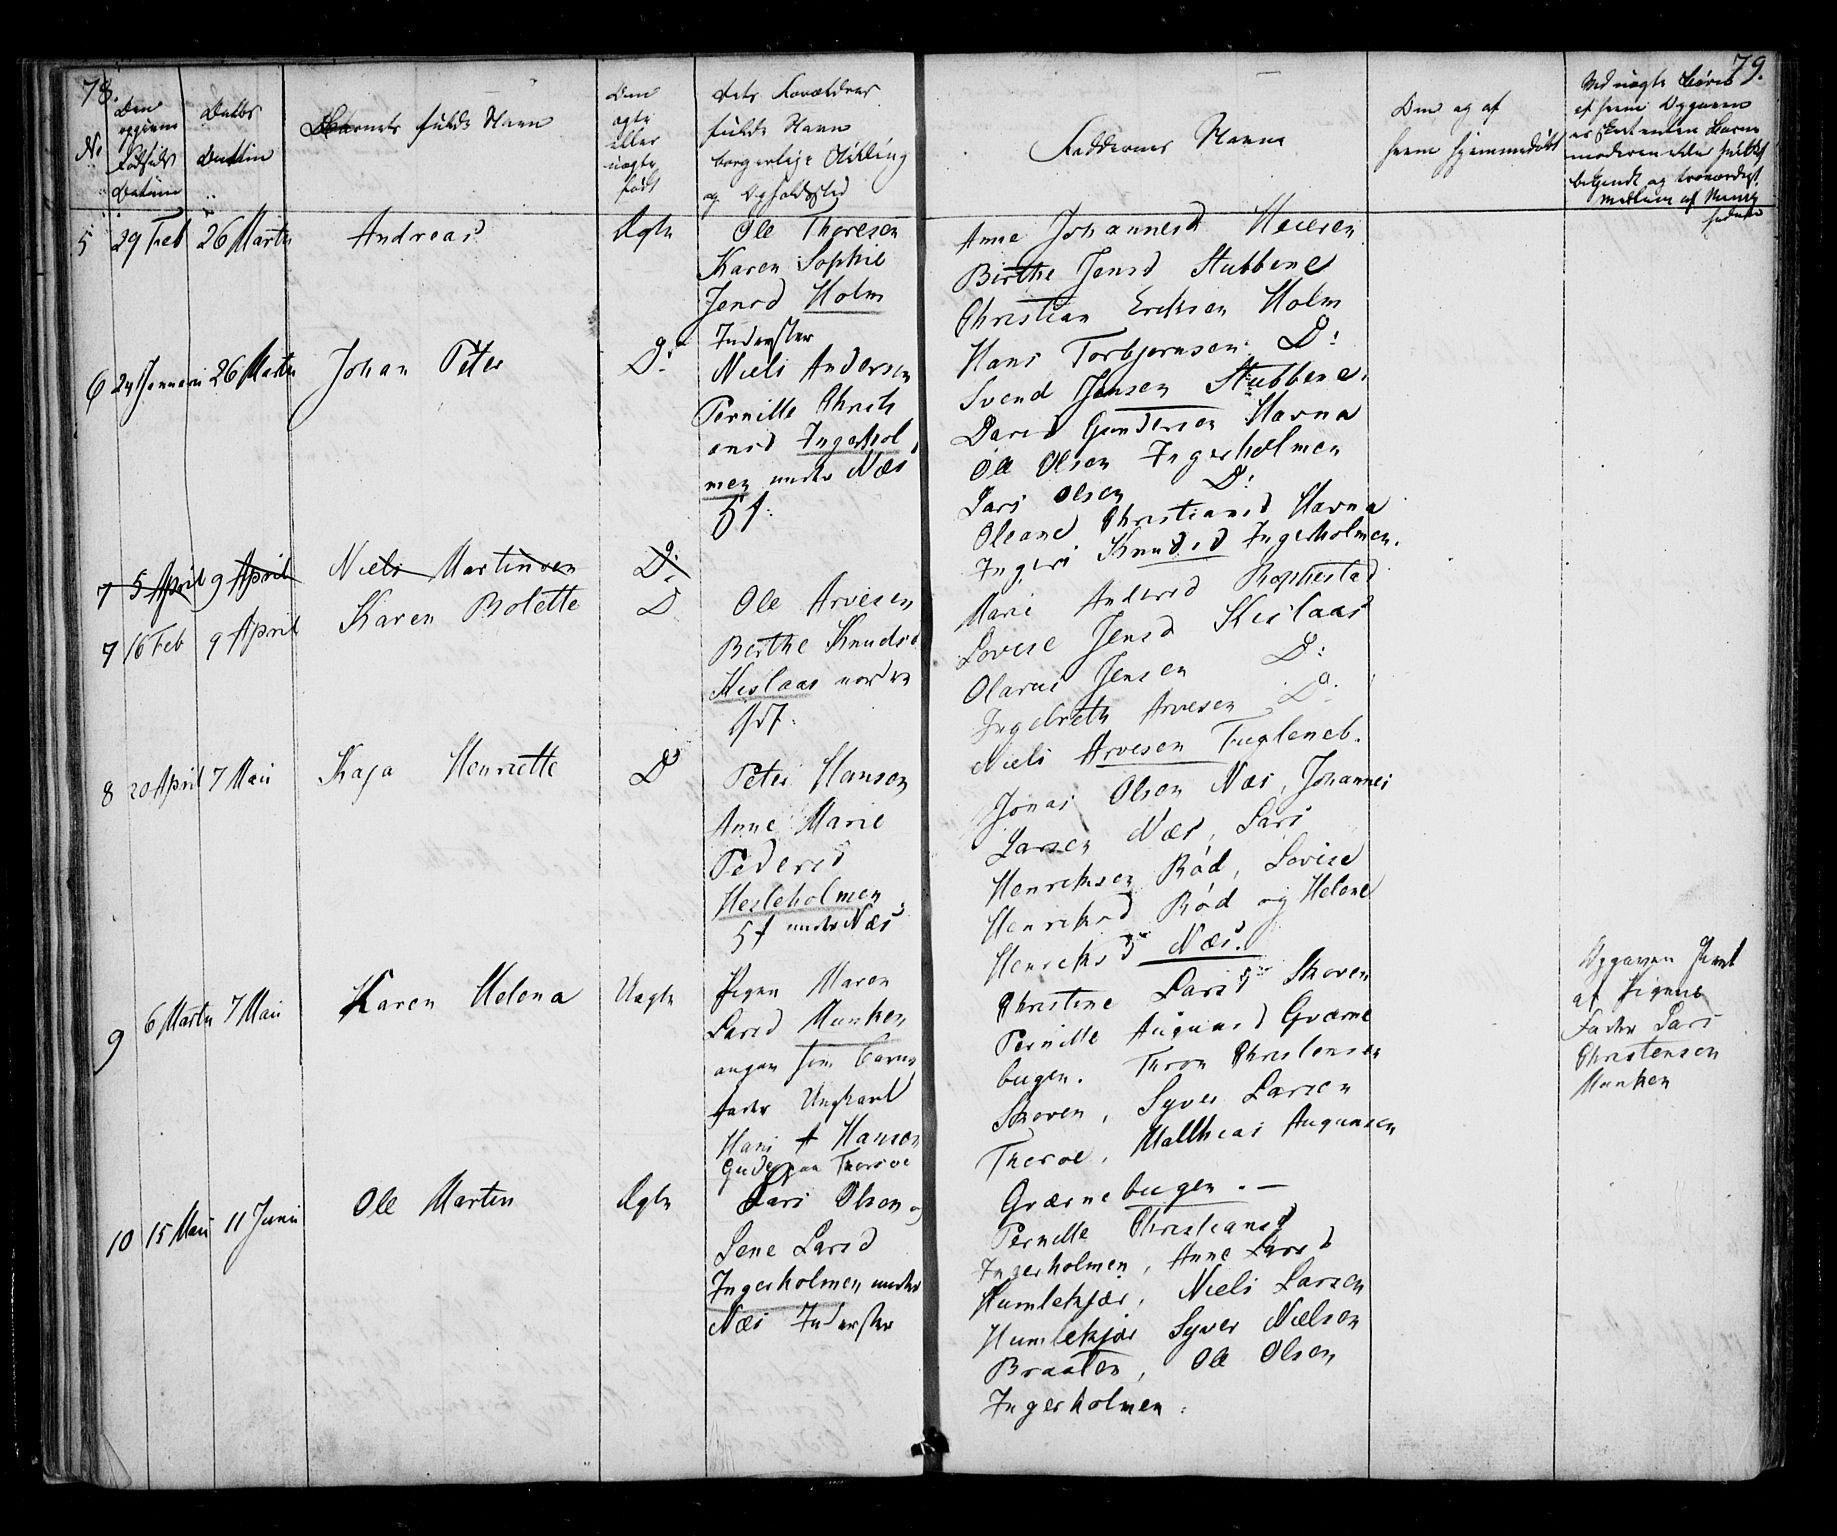 78.
79.
No
Den opgivne Fødsels Datum
Daabs Datum
Barnets fulde Navn
Om ægte eller uægte født
dets Forældres fulde Navn borgerlige Stilling og Opholdssted
Faddernes Navne
Om og af hvem hjemmedøbt
Ved uægte Børn af hvem Opgaven er
5 29 Feb 26 Martii Andreas Ægte
Ole Thoresen
Karen Sophie
Jensd Holm
Inderster
Anne Johannesd
Birthe Jensd Stubbene
Christian Ericksen Holm
Hans Torbjørnsen Do:
Svend Jensen Stubbene.
6 24 Januari 26 Martii Johan Peter Do:
Niels Andersen
Pernille Christi
ansd Ingerhol
men under Næs
Daniel Gundersen Havna
Ole Olsen Ingerholmen
Lars Olsen Do:
Oleane Christiansd Havna
Ingeri Knudsd Ingerholmen.
7 5 April 9 April Niels Martinsen Do:
7 16 Feb 9 April Karen Bolette Do
Ole Arvesen
Berthe Knudsd
Kislaas nordre
Marie Andersd
Lovise Jensd Kislaas
Olaves Jensen Do:
Ingebreth Arvesen Do.
Niels Arvesen Fugleneb.
8 20 April 7 Maii Kaja Henriette Do
Peter Hansen
Anne Marie
Pedersd
Hesleholmen
under Næs
Jonas Olsen Næs, Johannes
Larsen Næs, Lars
Henriksen Rød, Lovise
Henriksd Rød og Helene
Henriksd Næs.
9 6 Martii 7 Maii Karen Helena Uægte
Pigen Maren
Larsd Munken
angav som Barne
fader Ungkarl
Hans Hansen
Christine Larsd Skoven
Pernille Augunsd Grærne
bugen. Thron Christensen
Skoven, Syver Larsen
Theroe, Matthias Augunsen
Grærnebugen. —
Opgaven skeet
af Pigens
Fader Lars
Christensen
Munken
10 15 Maii 11 Junii Ole Martin Ægte
Lars Olsen og
Lene Larsd
Ingerholmen under
Næs Inderster
Pernille Christiansd
Ingerholmen, Anne Larsd
Humlekjær, Niels Larsen
Humlekjær Syver Nielsen
Braaten, Ole Olsen
Ingerholmen.